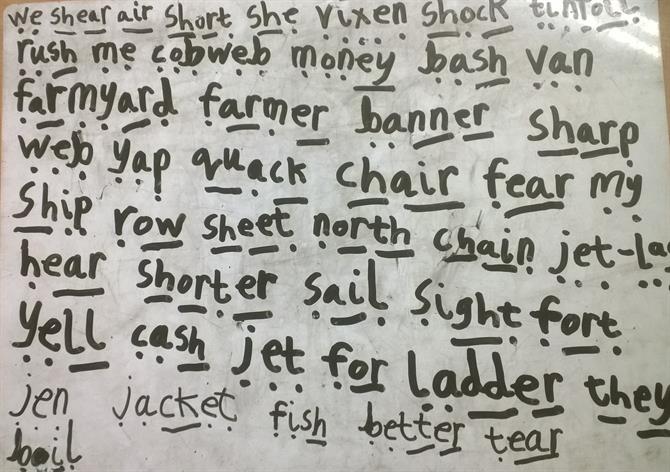 we shear air short she vixen shock
rush me cobweb money bash van
farmyard farmer banner sharp
web yap quack chair fear my
ship row sheet north chain jet-la
hear shorter sail sight fort
yell cash jet for ladder they
jen jacket fish better tear
boil